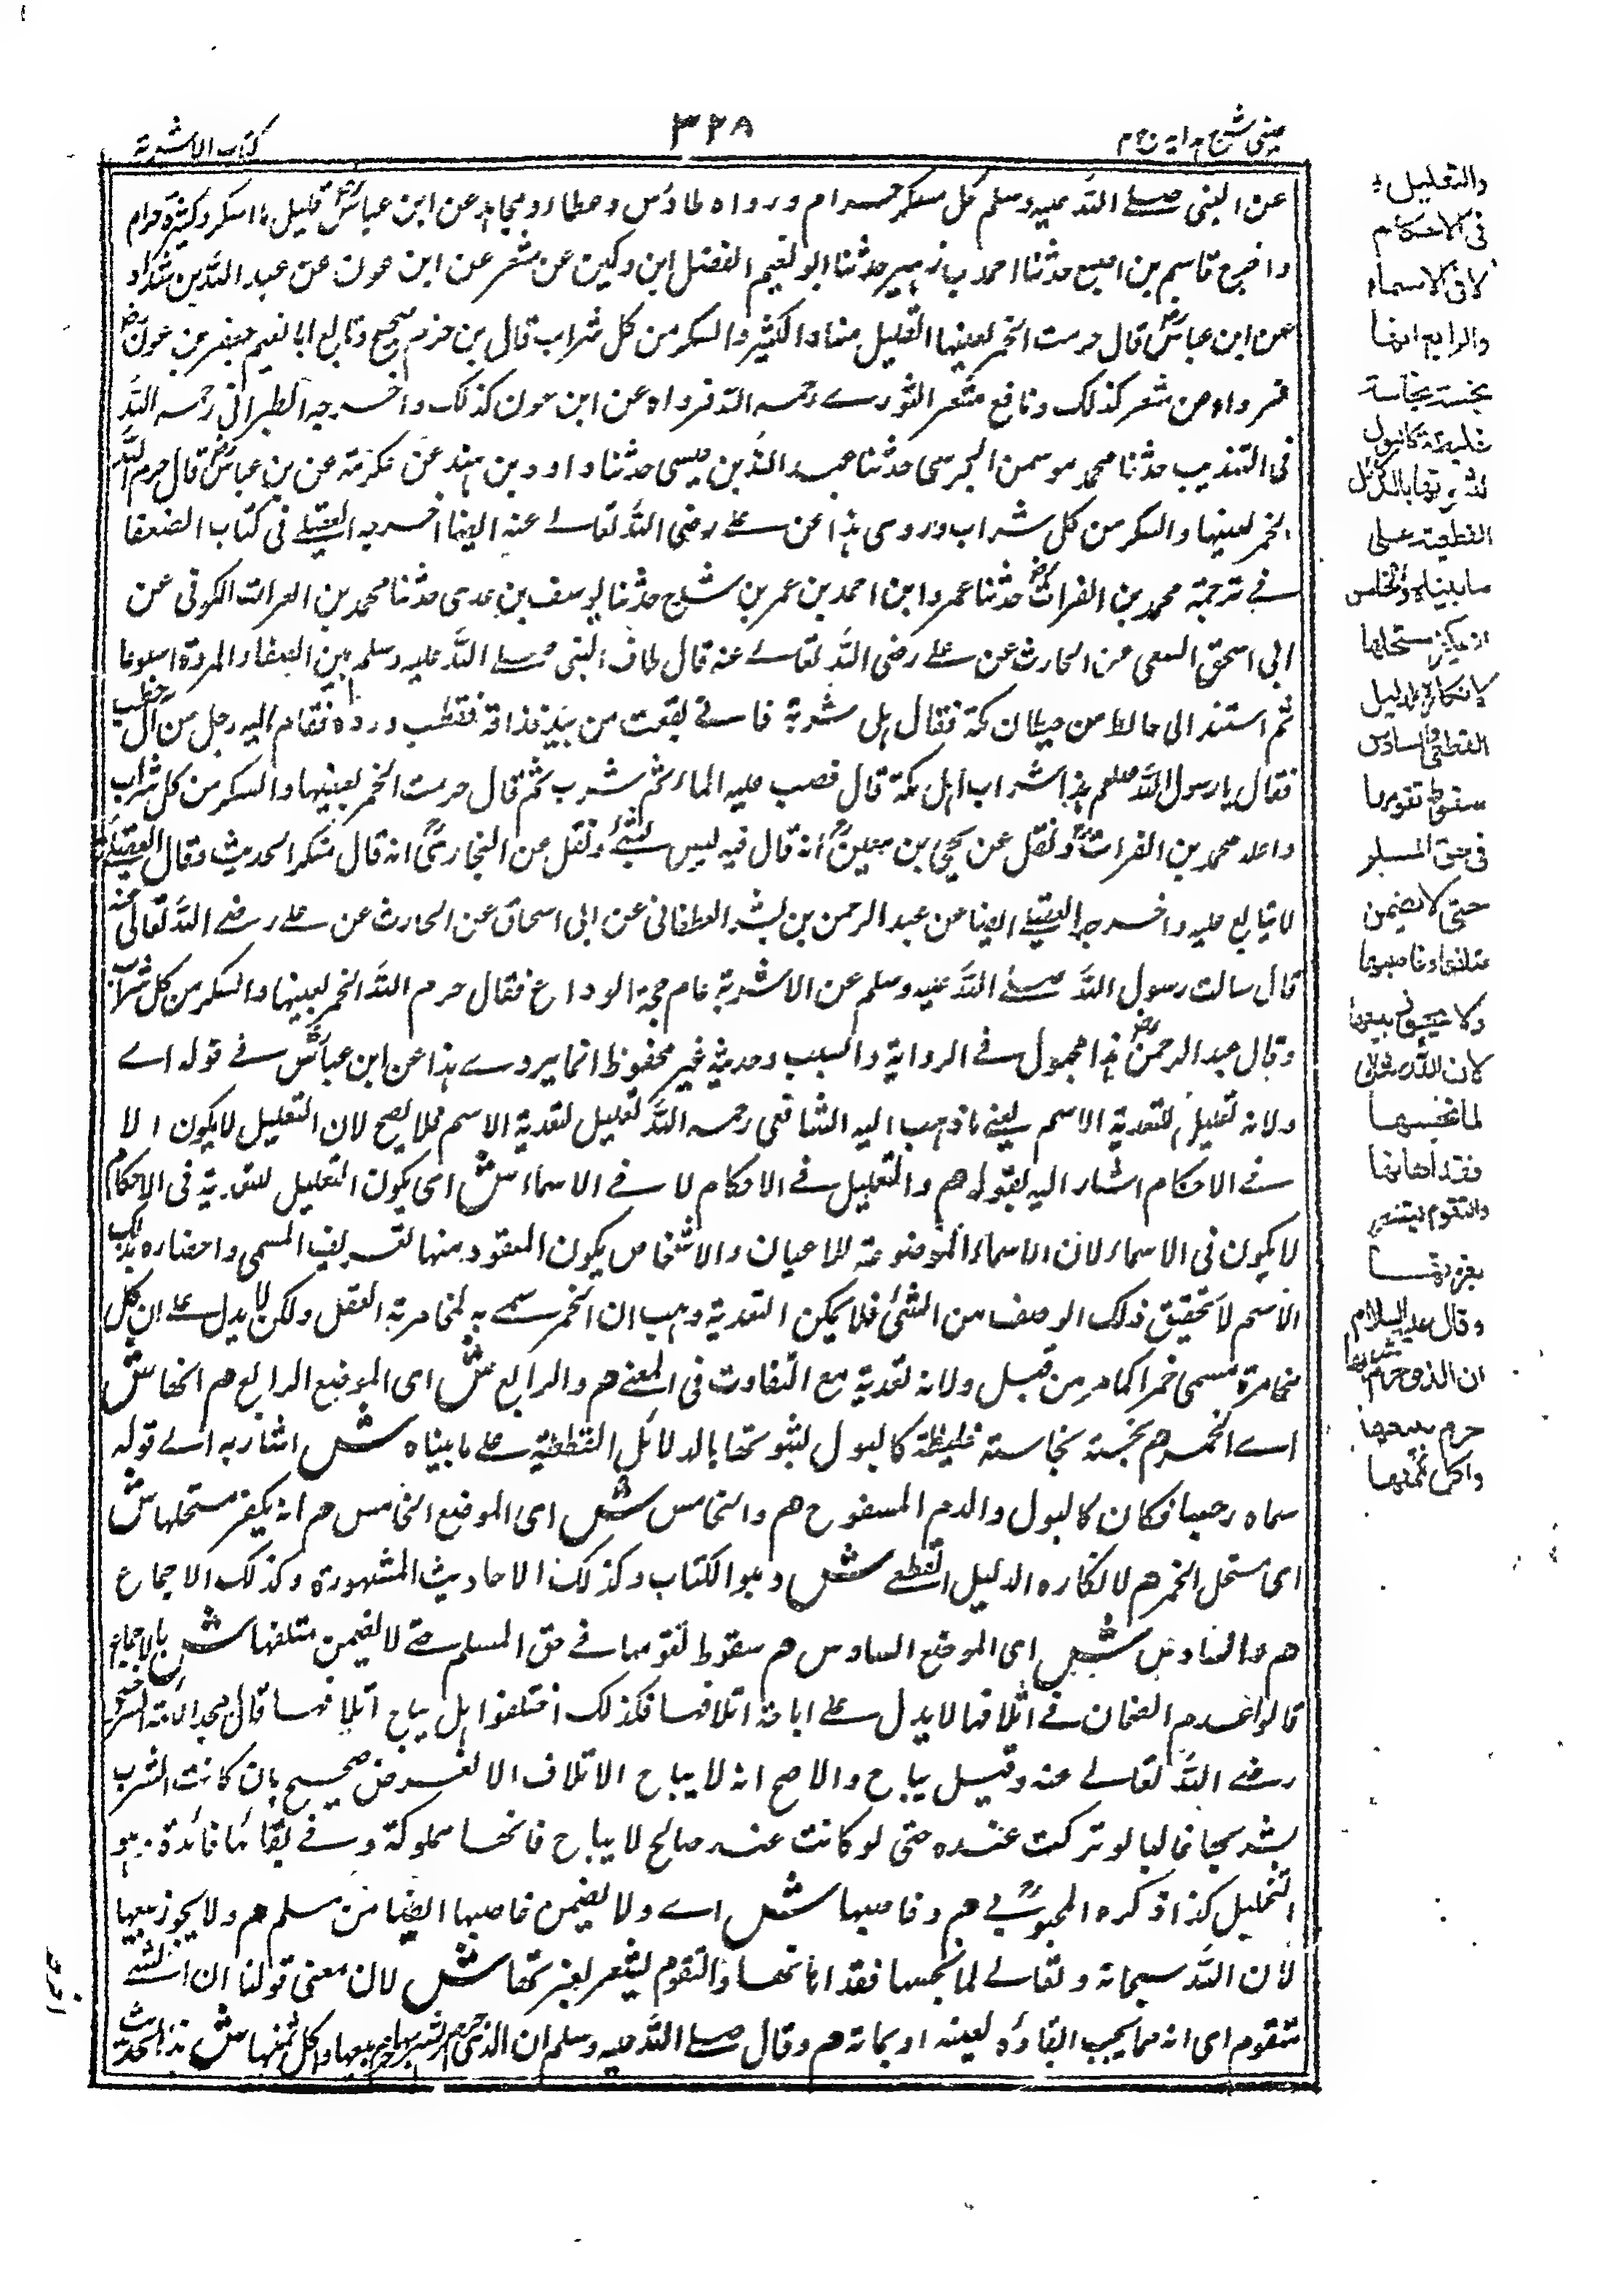 عینی شرح ہدایہ ج م
٣٢٨
کتاب الاشربة
عن النبی صلے اللہ علیہ وسلم کل مسکر حرام ورواہ طاؤس وعطار ومجاہد عن ابن عباسؓ قلیل ما اسکر وکثیرہ حرام
واخرج قاسم بن اصبع حدثنا احمد بن زہیر حدثنا ابو نعیم الفضل ابن دکین عن مسعر عن ابن عون عن عبد اللہ بن شداد
عن ابن عباسؓ قال حرمت الخمر لعینہا القلیل منہا والکثیر والسکر من کل شراب قال بن حزم صحیح وتابع ابا نعیم جعفر بن عونؓ
فرواہ عن مسعر کذلک وتابع مسعر الثورے رحمہ اللہ فرواہ عن ابن عون کذلک واخرجہ الطبرانی رحمہ اللہ
فی التہذیب حدثنا محمد موسی الجرسی حدثنا عبد اللہ بن عیسی حدثنا داود بن ہند عن عکرمة عن بن عباسؓ قال حرم اللہ
الخمر لعینہا والسکر من کل شراب وروی ہذا عن علے رضی اللہ تعالے عنہ ایضا اخرجہ العقیلے فی کتاب الضعفا
فے ترجمة محمد بن الفراتؓ حدثنا عمرو ابن احمد بن عمر بن شرح حدثنا یوسف بن عدی حدثنا محمد بن الفرات الکوفی عن
ابی اسحق السبعی عن الحارث عن علے رضی اللہ تعالے عنہ قال طاف النبی صلے اللہ علیہ وسلم بین الصفا والمروة اسبوعا
ثم استند الی حائط من حیطان مکة فقال ہل شربة فاتے بقعب من نبیذ فذاقہ فقطب وردہ فقام الیہ رجل من آل خطب
فقال یا رسول اللہ صلعم ہذا شراب اہل مکة قال فصب علیہ الماء ثم شرب ثم قال حرمت الخمر بعینہا والسکر من کل شراب
واعلہ محمد بن الفراتؒ ونقل عن یحیی بن معینؒ انہ قال فیہ لیس بشئ ونقل عن البخاریؒ انہ قال منکر الحدیث وقال العقیلے
لا یتابع علیہ واخرجہ العقیلے ایضا عن عبد الرحمن بن بشر الغطفانی عن ابی اسحاق عن الحارث عن علے رضے اللہ تعالی عنہ
قال سالت رسول اللہ صلے اللہ علیہ وسلم عن الاشربة عام حجة الوداع فقال حرم اللہ الخمر لعینہا والسکر من کل شراب
وقال عبد الرحمنؒ ہذا مجہول فے الروایة والنسب وحدیثہ غیر محفوظ انما یروے ہذا عن ابن عباسؓ فے قولہ اے
ولانہ تعلیل لتعدیة الاسم یعنے ما ذہب الیہ الشافعی رحمہ اللہ تعلیل لتعدیة الاسم فلا یصح لان التعلیل لا یکون الا
فے الاحکام اشار الیہ بقولہ ھم والتعلیل فے الاحکام لا فے الاسماء ش ای یکون التعلیل للتعدیة فی الاحکام
لا یکون فی الاسماء لان الاسماء الموضوعة للاعیان والاشخاص یکون المقصود منہا تعریف المسمی واحضارہ بذلک
الاسم لا تحقیق ذلک الوصف من الشئ فلا یمکن التعدیة وہب ان الخمر سمے بہ لمخامرة العقل ولکن لا یدل علے ان کل
مخامرة تسمی خمرا کما مر من قبل ولانہ تعدیة مع التفاوت فی المعنے ھم والرابع ش ای الموضع الرابع ھم انہا ش
اے الخمر ھم نجسة نجاستہ غلیظة کالبول لثبوتہا بالدلائل القطعیة علے ما بیناہ ش اشار بہ الے قولہ
سماہ رجسا فکان کالبول والدم المسفوح ھم والخامس ش ای الموضع الخامس ھم انہ یکفر مستحلہا ش
ای مستحل الخمر ھم لانکارہ الدلیل القطعے ش وہو الکتاب وکذلک الاحادیث المشہورة وکذلک الاجماع
ھم والسادس ش ای الموضع السادس ھم سقوط تقومہا فے حق المسلم حتے لا یضمن متلفہا ش بالاجماع
قالوا عدم الضمان فے اتلافہا لا یدل علے اباحة اتلافہا فکذلک اختلفوا ہل یباح اتلافہا قال مجد الائمة السرخسی
رضے اللہ تعالے عنہ وقیل یباح والاصح انہ لا یباح الاتلاف الا لغرض صحیح بان کانت الشرب
شدیحا غالبا لو ترکت عندہ حتی لو کانت عند صالح لا یباح فانہا مملوکة وفے بقائہا فائدة وہو
التخلیل کذا ذکرہ المحبوبیؒ ھم وغاصبہا ش اے ولا یضمن غاصبہا ایضا من مسلم ھم ولا یجوز بیعہا
لان اللہ سبحانہ وتعالے لما نجسہا فقد اہانہا والتقوم یشعر بعزتہا ش لان معنی قولنا ان الشئے
متقوم ای انہ مما یجب ابقاؤہ لعینہ او بمانہ ھم وقال صلے اللہ علیہ وسلم ان الذی حرم شربہا حرم بیعہا واکل ثمنہا ش ہذا الحدیث
والتعلیل
فی الاحکام
لا فی الاسماء
والرابع انہا
نجسة نجاسة
غلیظة کالبول
لثبوتہا بالدلائل
القطعیة علی
ما بیناہ والخامس
انہ یکفر مستحلہا
لانکارہ الدلیل
القطعی والسادس
سقوط تقومہا
فی حق المسلم
حتی لا یضمن
متلفہا وغاصبہا
ولا یجوز بیعہا
لان اللہ تعالی
لما نجسہا
فقد اہانہا
والتقوم یشعر
بعزتہا
وقال علیہ السلام
ان الذی حرم شربہا
حرم بیعہا
واکل ثمنہا